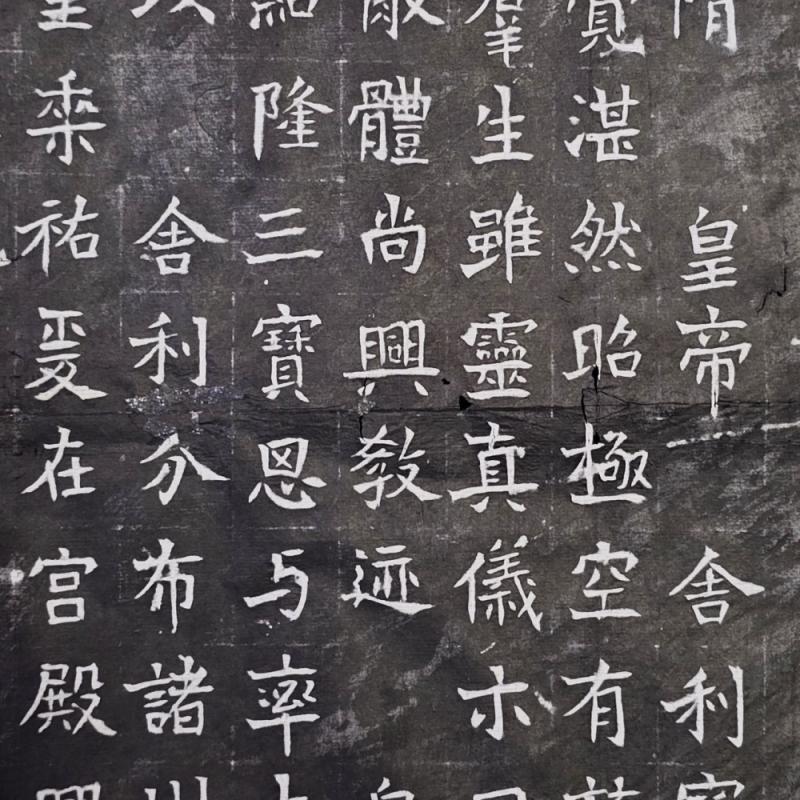 隋皇帝舍利
覺湛然昭極空有
羣生雖靈真儀示
體尚興教迹
隆三寶思与率
舍利分布諸州
垂祐爰在宮殿興